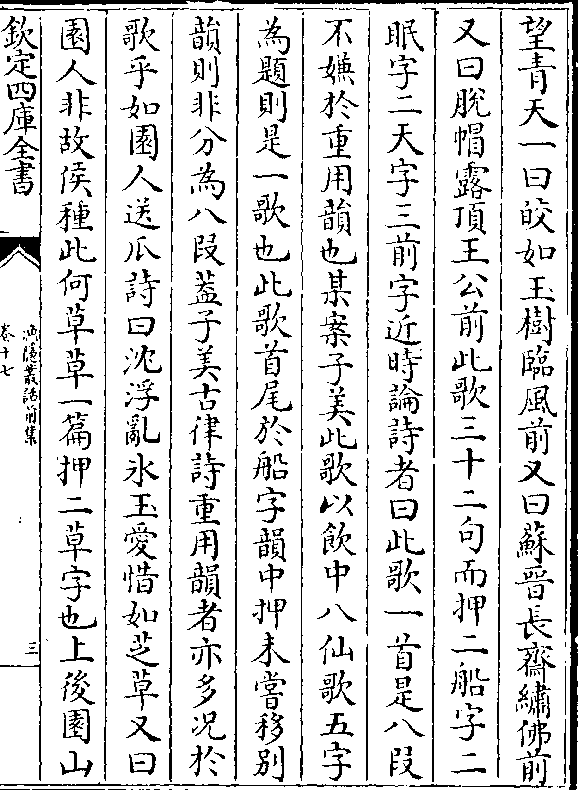 望青天一曰皎如玉樹臨風前又曰蘇晉長齋繡佛前
又曰脫帽露頂王公前此歌三十二句而押二船字二
眠字二天字三前字近時論詩者曰此歌一首是八段
不嫌於重用韻也某案子美此歌以飲中八仙歌五字
為題則是一歌也此歌首尾於船字韻中押未嘗移別
韻則非分為八段葢子美古律詩重用韻者亦多况於
歌乎如園人送瓜詩曰沈浮亂氷玉愛惜如芝草又曰
園人非故侯種此何草草一篇押二草字也上後園山
欽定四庫全書
漁隱叢話前集
卷十七
三